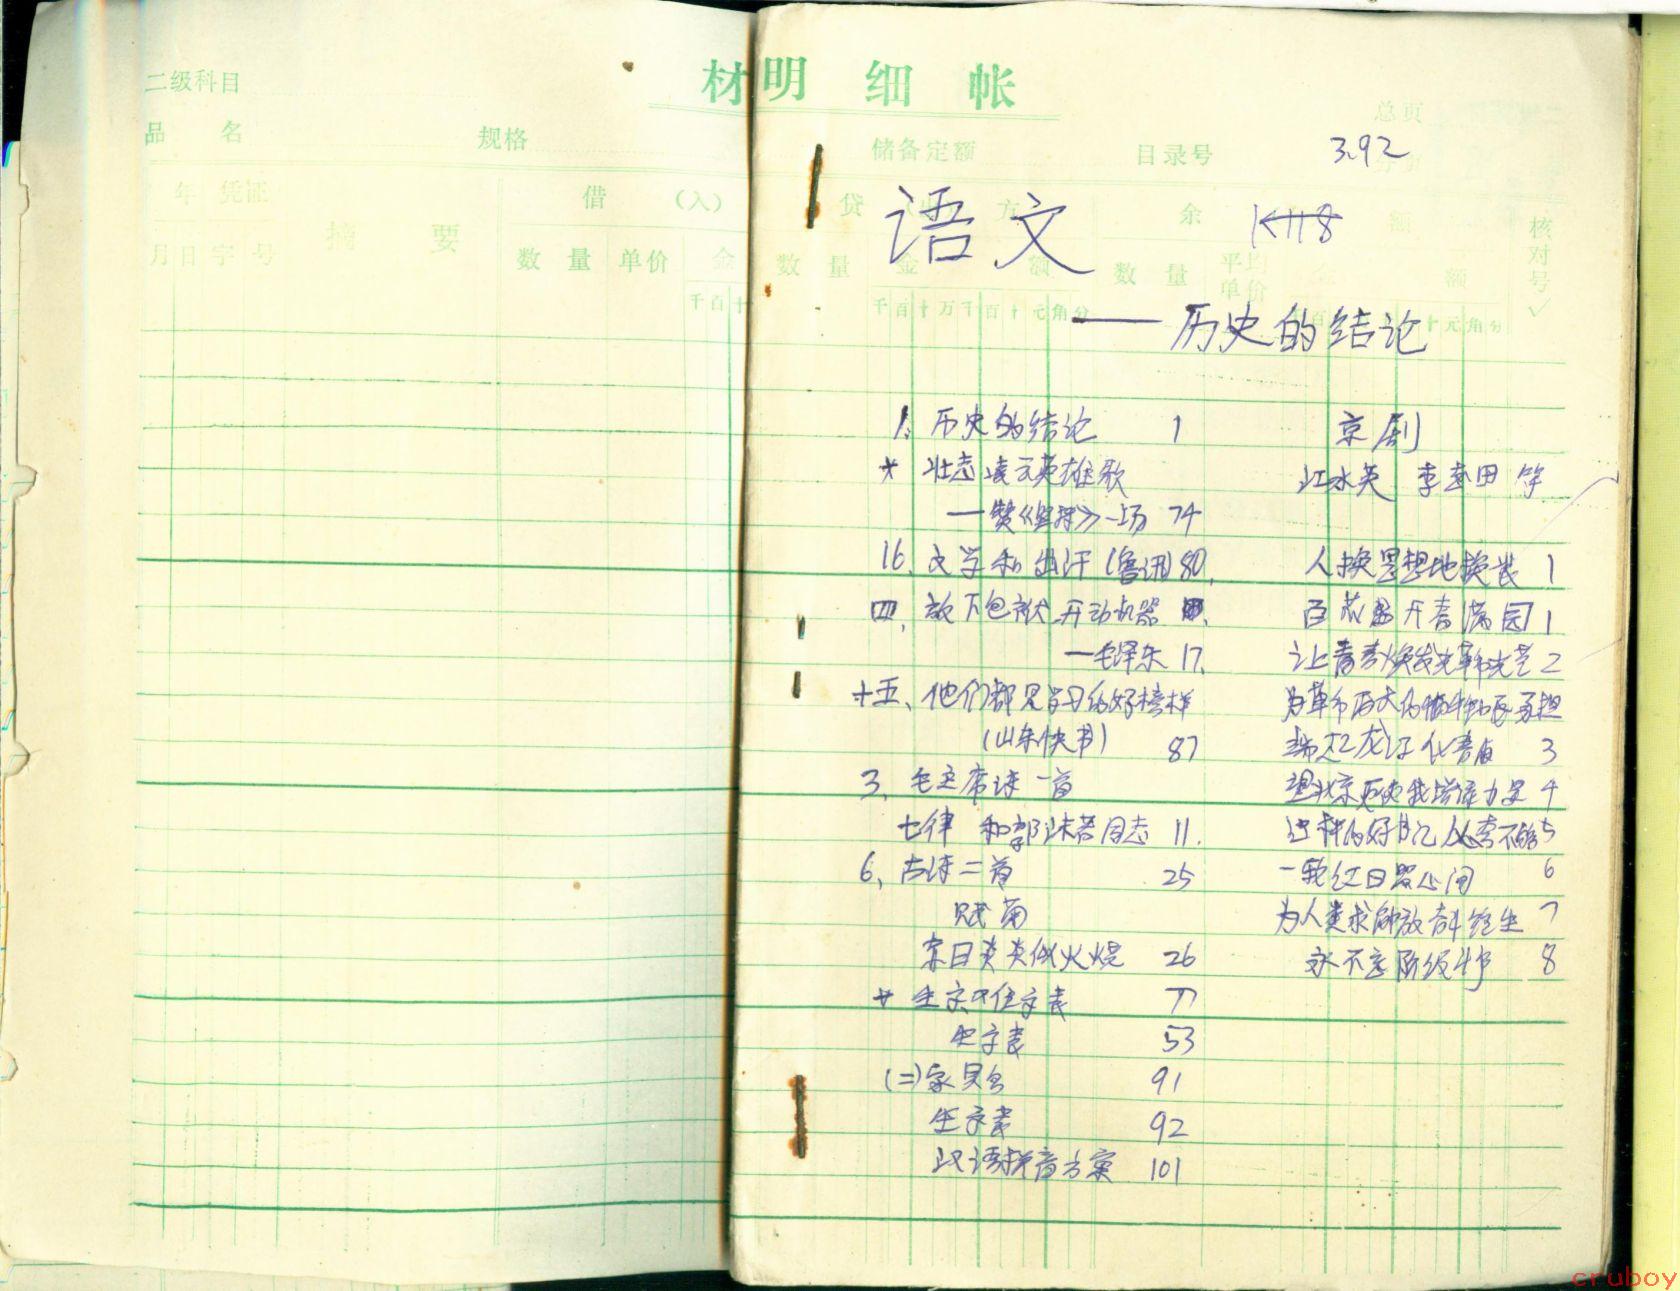 二级科目
材明细帐
总页
品名 规格
储备定额 目录号 3.92
年 凭证 摘要 借 (入)
月 日 字 号 数量 单价 金
千百十
贷 方 余 额 核对号
数量 金额 数量 平均单价 金额
千百十万千百十元角分
十元角分
语文 K118
——历史的结论
1. 历史的结论 1
* 壮志凌云英雄歌
—赞《坚持》一场 74
16. 文学和出汗(鲁迅)80.
四. 放下包袱 开动机器
—毛泽东 17.
十五、他们都是学习的好榜样
(山东快书) 87
3. 毛主席诗一首
七律 和郭沫若同志 11.
6. 古诗二首 25
赋菊
赤日炎炎似火烧 26
* 生字表 77
生字表 53
(二)家具名 91
生字表 92
汉语拼音方案 101
京剧
江水英 李志田 等
人换思想地换装 1
百花盛开春满园 1
让青春焕发出革命光芒 2
为革命
端起龙江化春雨 3
望北京更使我增添力量 4
这样的好书记人人夸不够 5
一轮红日照心间 6
为人类求解放奋斗终生 7
永不忘阶级情 8
cruboy